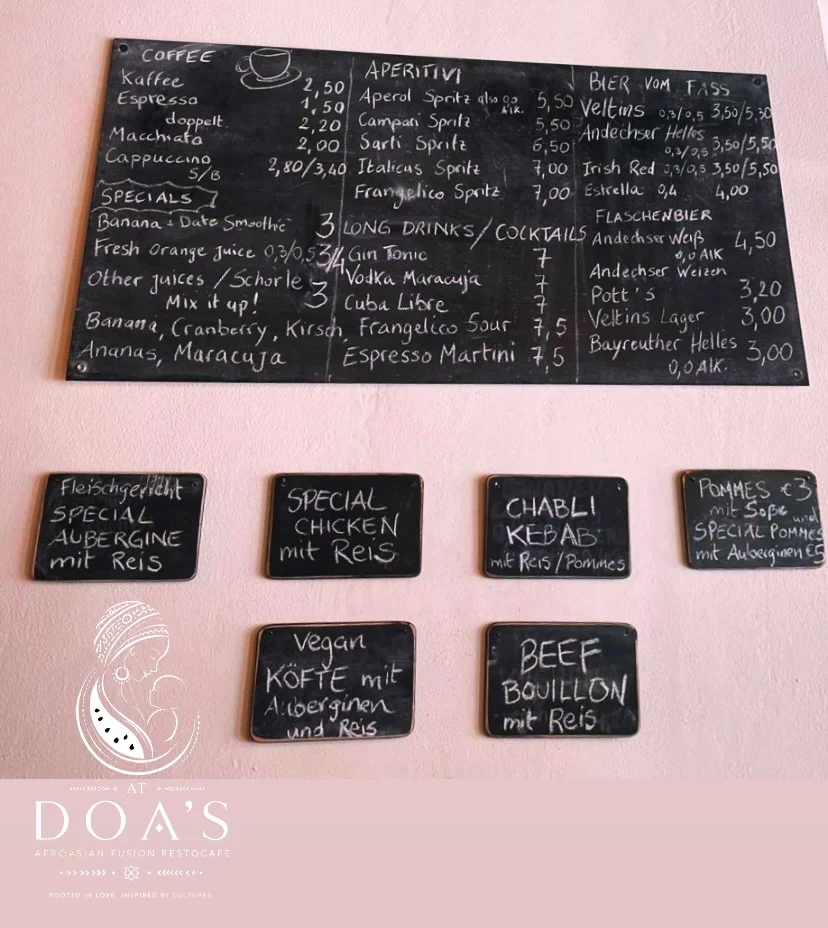 COFFEE
Kaffee 2,50
Espresso 1,50
doppelt 2,20
Macchiato 2,00
Cappuccino 2,80/3,40
S/B
SPECIALS
Banana + Date Smoothie 3
Fresh Orange Juice 0,3/0,5 3/4
Other juices / Schorle 3
Mix it up!
Banana, Cranberry, Kirsch,
Ananas, Maracuja
APERITIVI
Aperol Spritz also 0,0 Alk. 5,50
Campari Spritz 5,50
Sarti Spritz 6,50
Italicus Spritz 7,00
Frangelico Spritz 7,00
LONG DRINKS / COCKTAILS
Gin Tonic 7
Vodka Maracuja 7
Cuba Libre 7
Frangelico Sour 7,5
Espresso Martini 7,5
BIER VOM FASS
Veltins 0,3/0,5 3,50/5,30
Andechser Helles
0,3/0,5 3,50/5,50
Irish Red 0,3/0,5 3,50/5,50
Estrella 0,4 4,00
FLASCHENBIER
Andechser Weiß 4,50
0,0 Alk
Andechser Weizen
Pott's 3,20
Veltins Lager 3,00
Bayreuther Helles 3,00
0,0 Alk.
Fleischgericht
SPECIAL
AUBERGINE
mit Reis
SPECIAL
CHICKEN
mit Reis
CHABLI
KEBAB
mit Reis/Pommes
POMMES €3
mit Soße und
SPECIAL POMMES
mit Auberginen €5
Vegan
KÖFTE mit
Auberginen
und Reis
BEEF
BOUILLON
mit Reis
AT
DOA'S
AFROASIAN FUSION RESTOCAFÉ
ROOTED IN LOVE, INSPIRED BY CULTURES